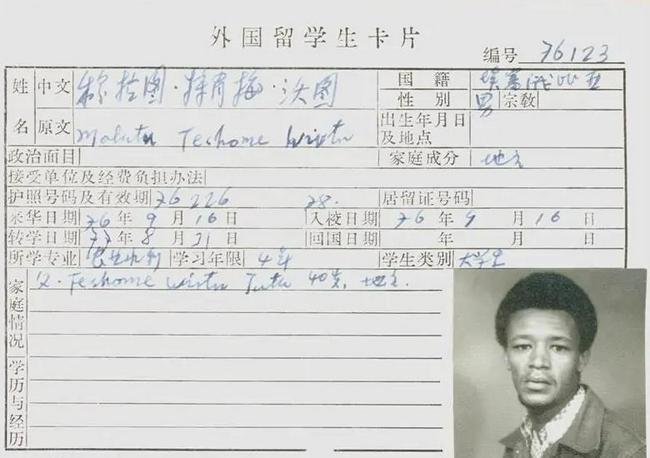 外国留学生卡片
编号 76123
姓名 中文 穆拉图·特肖梅·沃图 国籍 埃塞俄比亚
性别 男 宗教
原文 Mulatu Teshome Wirtu 出生年月日及地点
政治面目 家庭成分 地主
接受单位及经费负担办法
护照号码及有效期 76226 78. 居留证号码
来华日期 76年9月16日 入校日期 76年9月16日
转学日期 77年8月31日 回国日期 年 月 日
所学专业 学习年限 4年 学生类别 大学生
家庭情况 父. Teshome Wirtu Tutu 40岁, 地主.
学历与经历